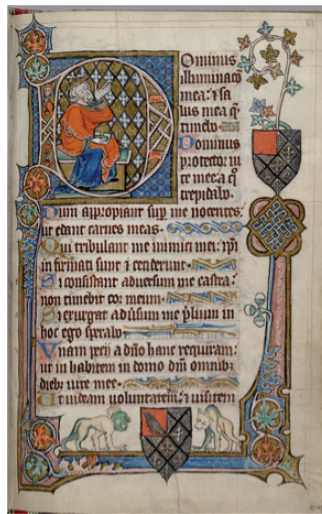 Dominus
illuminacō
mea: & sa
lus mea q̄
timebo
Dominus
protector ui
te mee: a q̄
trepidabo.
Dum appropiant sup me nocentes:
ut edant carnes meas.
Qui tribulant me inimici mei: ip̄i
infirmati sunt & ceciderunt.
Si consistant aduersum me castra:
non timebit cor meum.
Si exurgat adūsum me p̄lium in
hoc ego sperabo.
Vnam pecii a dn̄o hanc requiram:
ut in habitem in domo dn̄i omnib;
dieb; uite mee.
Ut uideam uoluntatem & uisitem